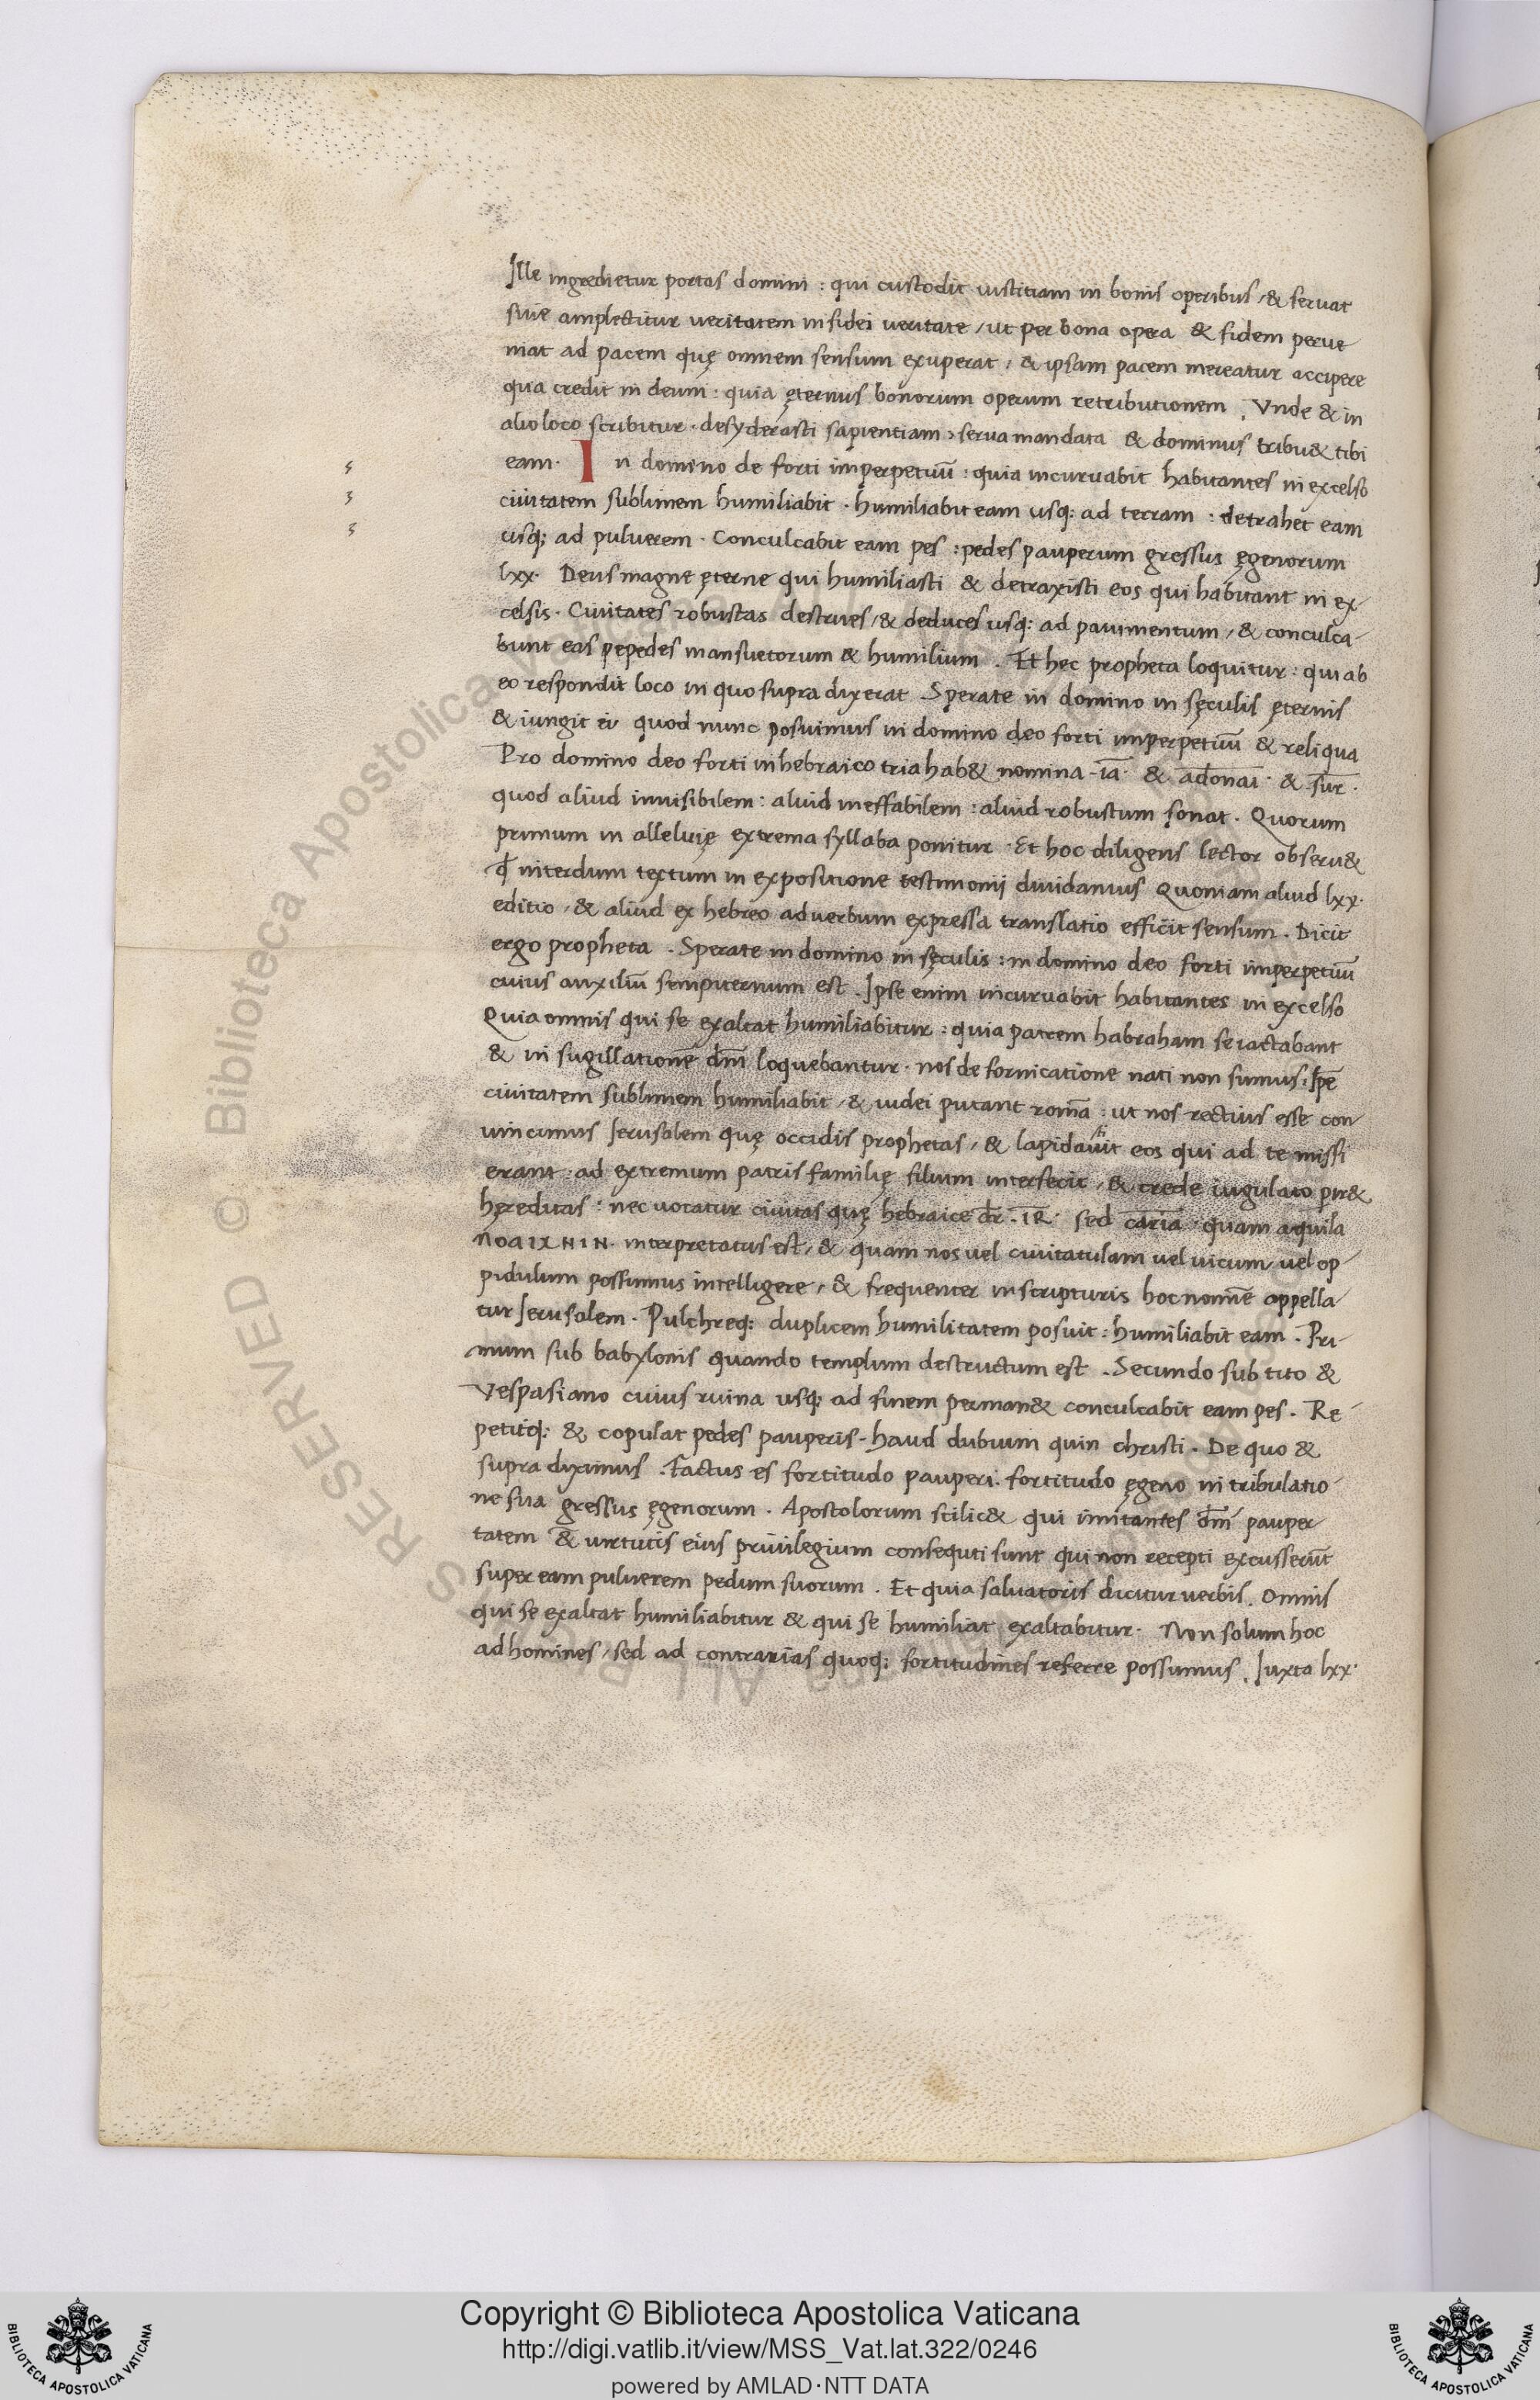 Ille ingredietur portas domini : qui custodit iustitiam in bonis operibus / & seruat
siue amplectitur ueritatem in fidei ueritate / ut per bona opera & fidem perue
niat ad pacem quę omnem sensum exuperat / & ipsam pacem mereatur accipere
qua credit in deum : quia ęternus bonorum operum retributionem . Vnde & in
alio loco scribitur · desyderasti sapientiam > serua mandata & dominus tribu& tibi
eam · In domino de forti imperpetuū : quia incuruabit habitantes in excelso
ciuitatem sublimem humiliabit · humiliabit eam usq; ad terram : detrahet eam
usq; ad puluerem · Conculcabit eam pes : pedes pauperum gressus ęgenorum
lxx · Deus magne ęterne qui humiliasti & detraxisti eos qui habitant in ex-
celsis · Ciuitates robustas destrues / & deduces usq; ad pauimentum / & conculca-
bunt eas pepedes mansuetorum & humilium . Et hec propheta loquitur : qui ab
eo respondit loco in quo supra dixerat Sperate in domino in sęculis ęternis
& iungit ei quod nunc posuimus in domino deo forti imperpetuū & reliqua
Pro domino deo forti in hebraico tria hab& nomina - ia̅ · & ad̅onai̅ · & su̅r ·
quod aliud inuisibilem : aliud ineffabilem : aliud robustum sonat . Quorum
primum in alleluię extrema syllaba ponitur · Et hoc diligens lector obseru&
ꝙ interdum textum in expositione testimonij diuidamus Quoniam aliud lxx ·
editio · & aliud ex hebreo ad uerbum expressa translatio efficit sensum . Dicit
ergo propheta . Sperate in domino in sęculis : in domino deo forti imperpetuū
cuius auxiliū sempiternum est . Ipse enim incuruabit habitantes in excelso
Quia omnis qui se exaltat humiliabitur : quia patrem habraham se iactabant
& in sugillationē dn̅m loquebantur · nos de fornicatione nati non sumus : Ip̅e
ciuitatem sublimem humiliabit / & iudei putant romā : ut nos rectius esse con
uincimus Ierusalem quę occidis prophetas / & lapidauit eos qui ad te missi
erant · ad extremum patris familię filium interfecit / & crede iugulato pir&
hęreditas : nec uocatur ciuitas quę hebraice dr̅ . IR̅ · sed car̅ia · quam aquila
noaixnin · interpretatus est / & quam nos uel ciuitatulam uel uicum / uel op-
pidulum possumus intelligere / & frequenter in scripturis hoc nomē appella
tur Ierusalem · Pulchreq; duplicem humilitatem posuit : humiliabit eam . Pri-
mum sub babylonis quando templum destructum est . Secundo sub tito &
Vespasiano cuius ruina usq; ad finem perman& conculcabit eam pes . Re
petitq; & copulat pedes pauperis - haud dubium quin christi . De quo &
supra diximus . Factus es fortitudo pauperi · fortitudo ęgeno in tribulatio
ne sua gressus ęgenorum . Apostolorum scilic& qui imitantes dn̅m pauper
tatem & uirtutis eius priuilegium consequti sunt qui non recepti excusserūt
super eam puluerem pedum suorum . Et quia saluatoris dicitur uerbis . Omnis
qui se exaltat humiliabitur & qui se humiliat exaltabitur · Non solum hoc
ad homines / sed ad contrarias quoq; fortitudines referre possumus . Iuxta lxx ·
RESERVED © Biblioteca Apostolica Vaticana
Copyright © Biblioteca Apostolica Vaticana
http://digi.vatlib.it/view/MSS_Vat.lat.322/0246
powered by AMLAD·NTT DATA
BIBLIOTECA APOSTOLICA VATICANA
BIBLIOTECA APOSTOLICA VATICANA